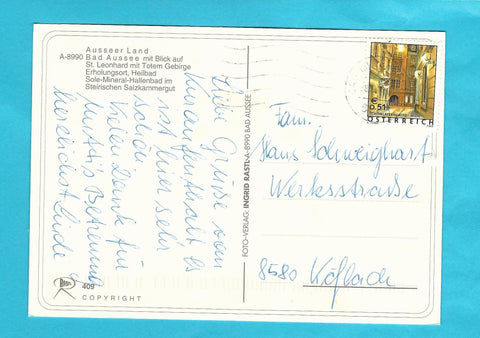 Ausseer Land
A-8990 Bad Aussee mit Blick auf
St. Leonhard mit Totem Gebirge
Erholungsort, Heilbad
Sole-Mineral-Hallenbad im
Steirischen Salzkammergut
Liebe Grüße vom
Kuraufenthalt es
ist hier sehr
schön
Vielen Dank für
Mutti's Betreuung
herzlichst Linde
409
COPYRIGHT
FOTO-VERLAG: INGRID RASTL-A-8990 BAD AUSSEE
€ 0.51
ÖSTERREICH
Fam.
Hans Schweighart
Werksstraße
8580 Köflach